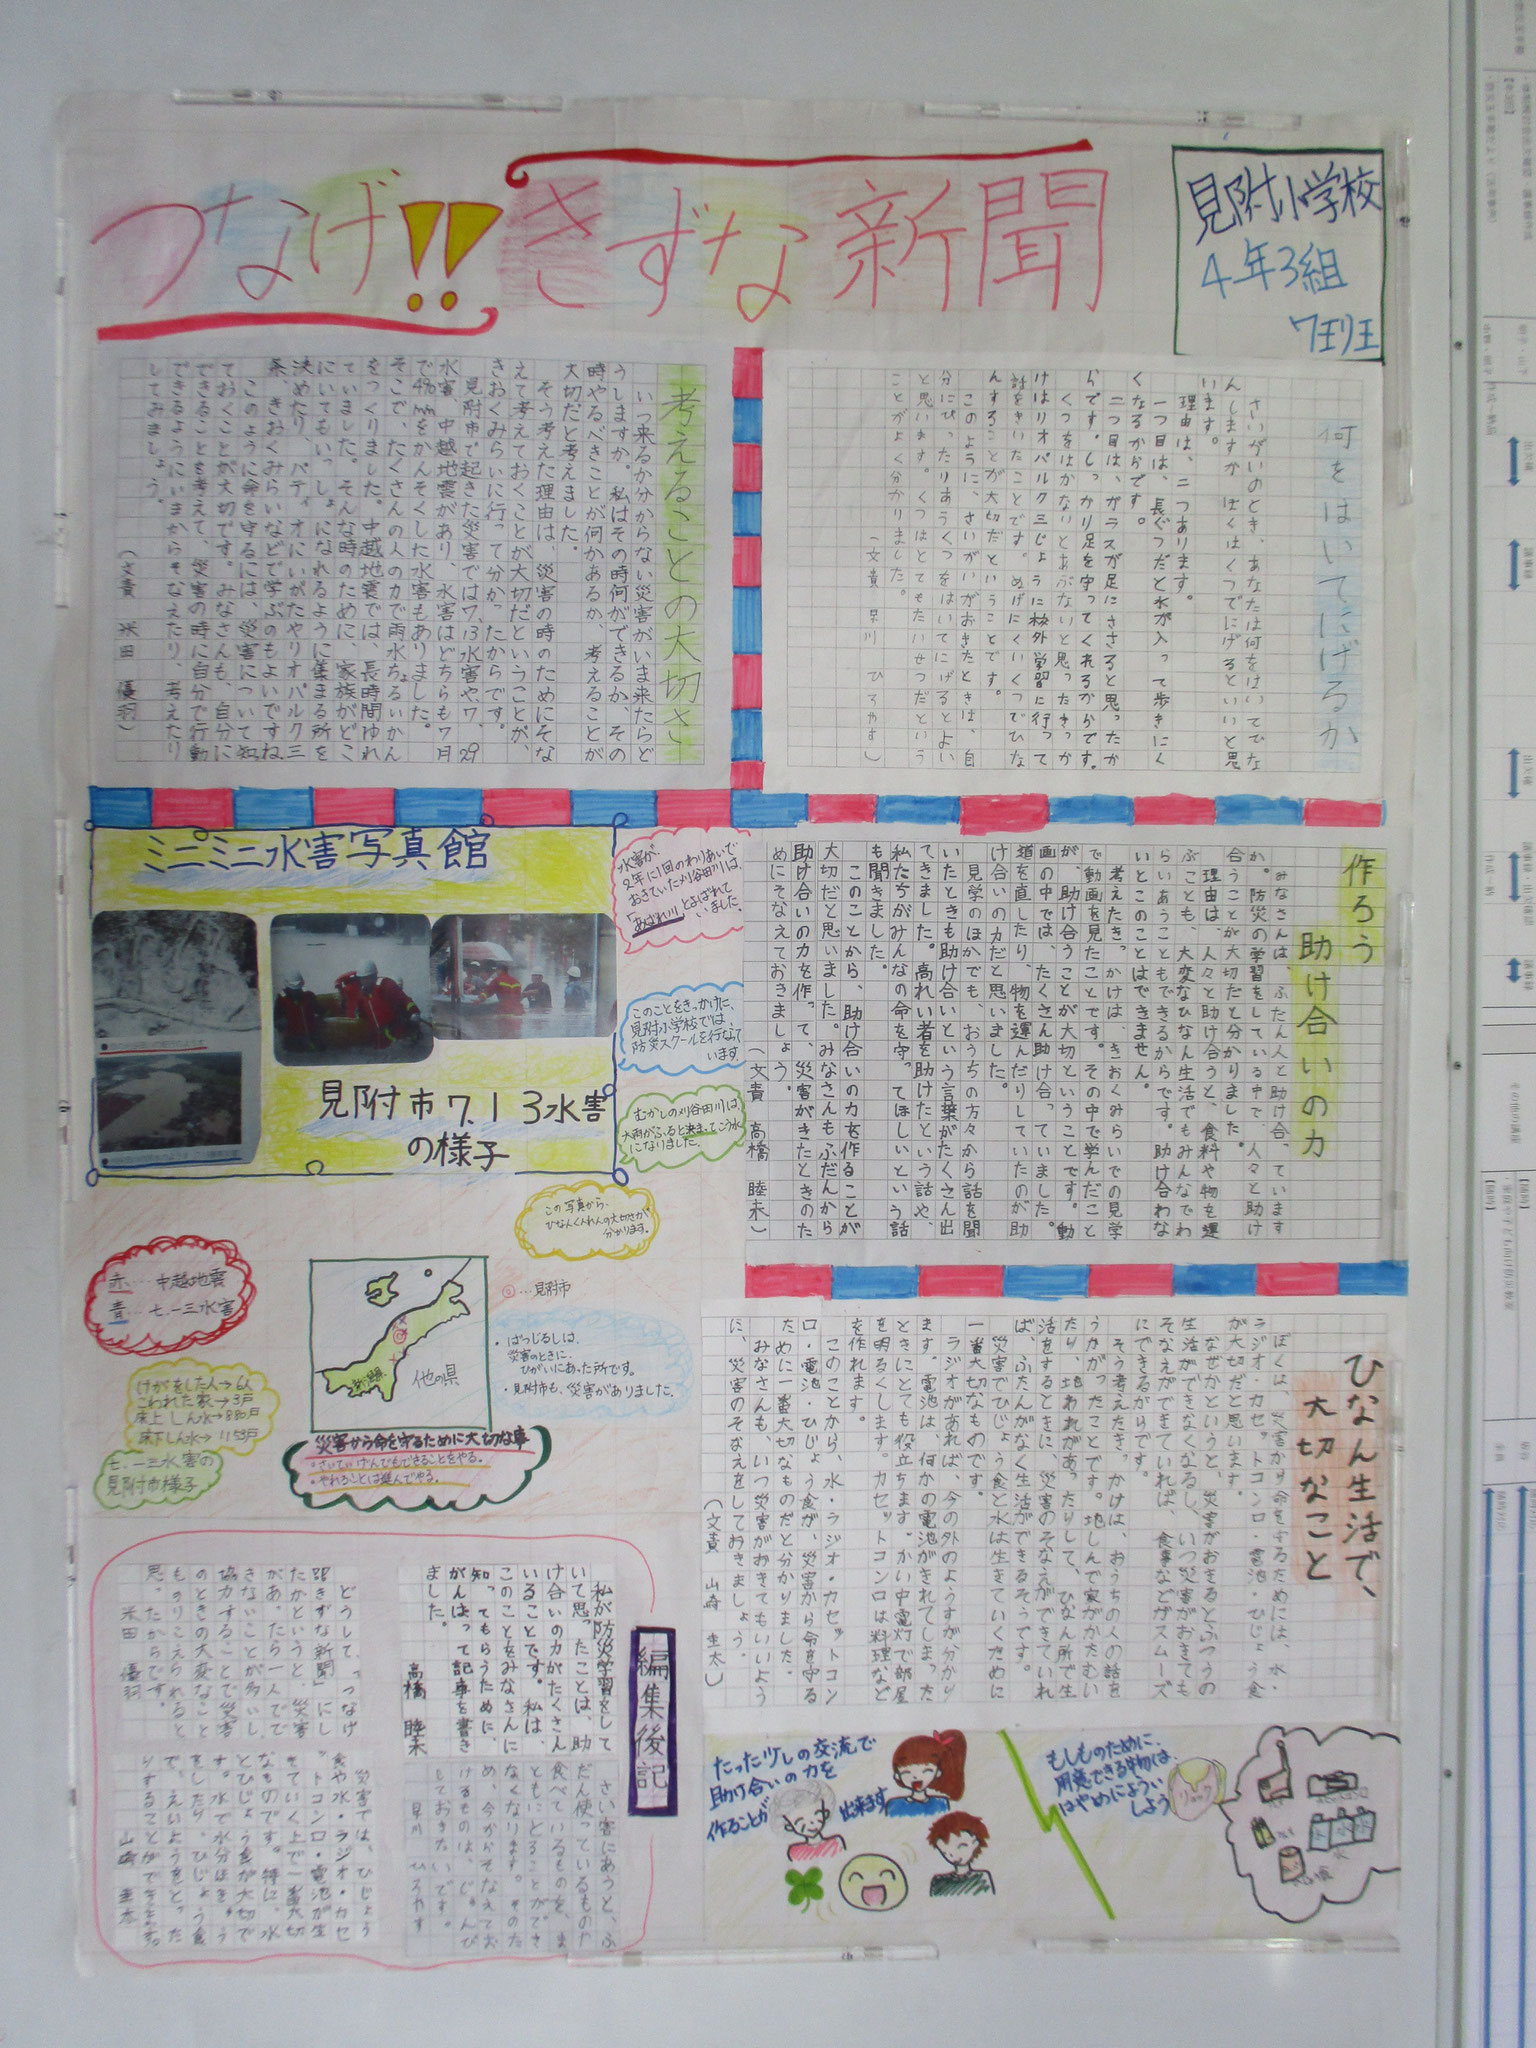 つなげ!!きずな新聞
見附小学校
4年3組
7班
何をはいてにげるか
さいがいのとき、あなたは何をはいてひな
んしますか。ぼくはくつでにげるといいと思
います。
理由は、二つあります。
一つ目は、長ぐつだと水が入って歩きにく
くなるからです。
二つ目は、ガラスが足にささると思ったか
らです。しっかり足を守ってくれるからです。
くつをはかないとあぶないと思ったきっか
けはリオパルク三じょうに校外学習に行って
話をきいたことです。ぬげにくいくつでひな
んすることが大切だということです。
このように、さいがいがおきたときは、自
分にぴったりあうくつをはいてにげるとよい
と思います。くつはとてもたいせつだという
ことがよく分かりました。
(文責 早川 ひろやす)
考えることの大切さ
いつ来るか分からない災害がいま来たらど
うしますか。私はその時何ができるか、その
時やるべきことが何かあるか、考えることが
大切だと考えました。
そう考えた理由は、災害の時のためにそな
えて考えておくことが大切だということが、
きおくみらいに行って分かったからです。
見附市で起きた災害では7.13水害や、7.29
水害、中越地震があり、水害はどちらも7月
そこで、たくさんの人の力で雨水ちょ
をつくりました。中越地震では、長時間ゆれ
ていました。そんな時のために、家族がどこ
にいてもいっしょになれるように集まる所を
決めたり、パティオにいがたやリオパルク三
条、きおくみらいなどで学ぶのもよいですね。
このように命を守るには、災害について知っ
ておくことが大切です。みなさんも、自分に
できることを考えて、災害の時に自分で行動
できるようにいまからそなえたり、考えたり
してみましょう。
(文責 米田 優羽)
作ろう
助け合いの力
みなさんは、ふだん人と助け合っています
か。防災の学習をしている中で、人々と助け
合うことが大切だと分かりました。
理由は、人々と助け合うと、食料や物を運
ぶことも、大変なひなん生活でもみんなでわ
らいあうこともできるからです。助け合わな
いとこのことはできません。
考えたきっかけは、きおくみらいでの見学
で動画を見たことです。その中で学んだこと
が、助け合うことが大切ということです。動
画の中では、たくさん助け合っていました。
道を直したり、物を運んだりしていたのが助
け合いの力だと思いました。
見学のほかでも、おうちの方々から話を聞
いたときも助け合いという言葉がたくさん出
てきました。高れい者を助けたという話や、
私たちがみんなの命を守ってほしいという話
も聞きました。
このことから、助け合いの力を作ることが
大切だと思いました。みなさんもふだんから
助け合いの力を作って、災害がきたときのた
めにそなえておきましょう。
(文責 高橋 睦未)
ミニミニ水害写真館
見附市7.13水害
の様子
水害が、
2年に1回のわりあいで
おきていた刈谷田川は、
「あばれ川」とよばれて
いました。
このことをきっかけに、
見附小学校では、
防災スクールを行なって
います。
むかしの刈谷田川は、
大雨がふると決まってこう水
になりました。
この写真から、
ひなんくんれんの大切さが
分かります。
赤…中越地震
青…七.一三水害
けがをした人→6人
こわれた家→3戸
床上しん水→880戸
床下しん水→1153戸
七.一三水害の
見附市様子
新潟県
他の県
◎…見附市
・ばつじるしは、
災害のときに、
ひがいにあった所です。
・見附市も、災害がありました。
災害から命を守るために大切な事
・さいていげんでもできることをやる。
・やれることは進んでやる。
ひなん生活で、
大切なこと
ぼくは、災害から命を守るためには、水・
ラジオ・カセットコンロ・電池・ひじょう食
が大切だと思います。
なぜかというと、災害がおきるとふつうの
生活ができなくなるし、いつ災害がおきても
そなえができていれば、食事などがスムーズ
にできるからです。
そう考えたきっかけは、おうちの人の話を
うかがったことです。地しんで家がかたむい
たり、地われがあったりして、ひなん所で生
活をするときに、災害のそなえができていれ
ば、ふたんがなく生活ができるそうです。
災害でひじょう食と水は生きていくために
一番大切なものです。
ラジオがあれば、今の外のようすが分かり
ます。電池は、何かの電池がきれてしまった
ときにとても役立ちます。かい中電灯で部屋
を明るくします。カセットコンロは料理など
を作れます。
このことから、水・ラジオ・カセットコン
ロ・電池・ひじょう食が、災害から命を守る
ために一番大切なものだと分かりました。
みなさんも、いつ災害がおきてもいいよう
に、災害のそなえをしておきましょう。
(文責 山崎 圭太)
編集後記
私が防災学習をして
いて思ったことは、助
け合いの力がたくさん
いることです。私は、
このことをみなさんに
知ってもらうために、
がんばって記事を書き
ました。
高橋 睦未
さい害にあうと、ふ
だん使っているものや
食べているものを、ま
ともにとることができ
なくなります。そのた
め、今からそなえてお
けるものは、じゅんび
しておきたいです。
早川 ひろやす
どうして、「つなげ
!!きずな新聞」にし
たかというと、災害
があったら一人でで
きないことが多いし、
協力することで災害
のときの大変なこと
ものりこえられると
思ったからです。
米田 優羽
災害では、ひじょう
食や水・ラジオ・カセ
ットコンロ・電池が生
きていく上で一番大切
なものです。特に、水
とひじょう食が大切で
す。水で水分ほきゅう
をしたり、ひじょう食
で、えいようをとった
りすることができます。
山崎 圭太
たった少しの交流で
助け合いの力を
作ることが
出来ます
もしものために、
用意できる物は、
はやめにようい
しよう
リュック
水